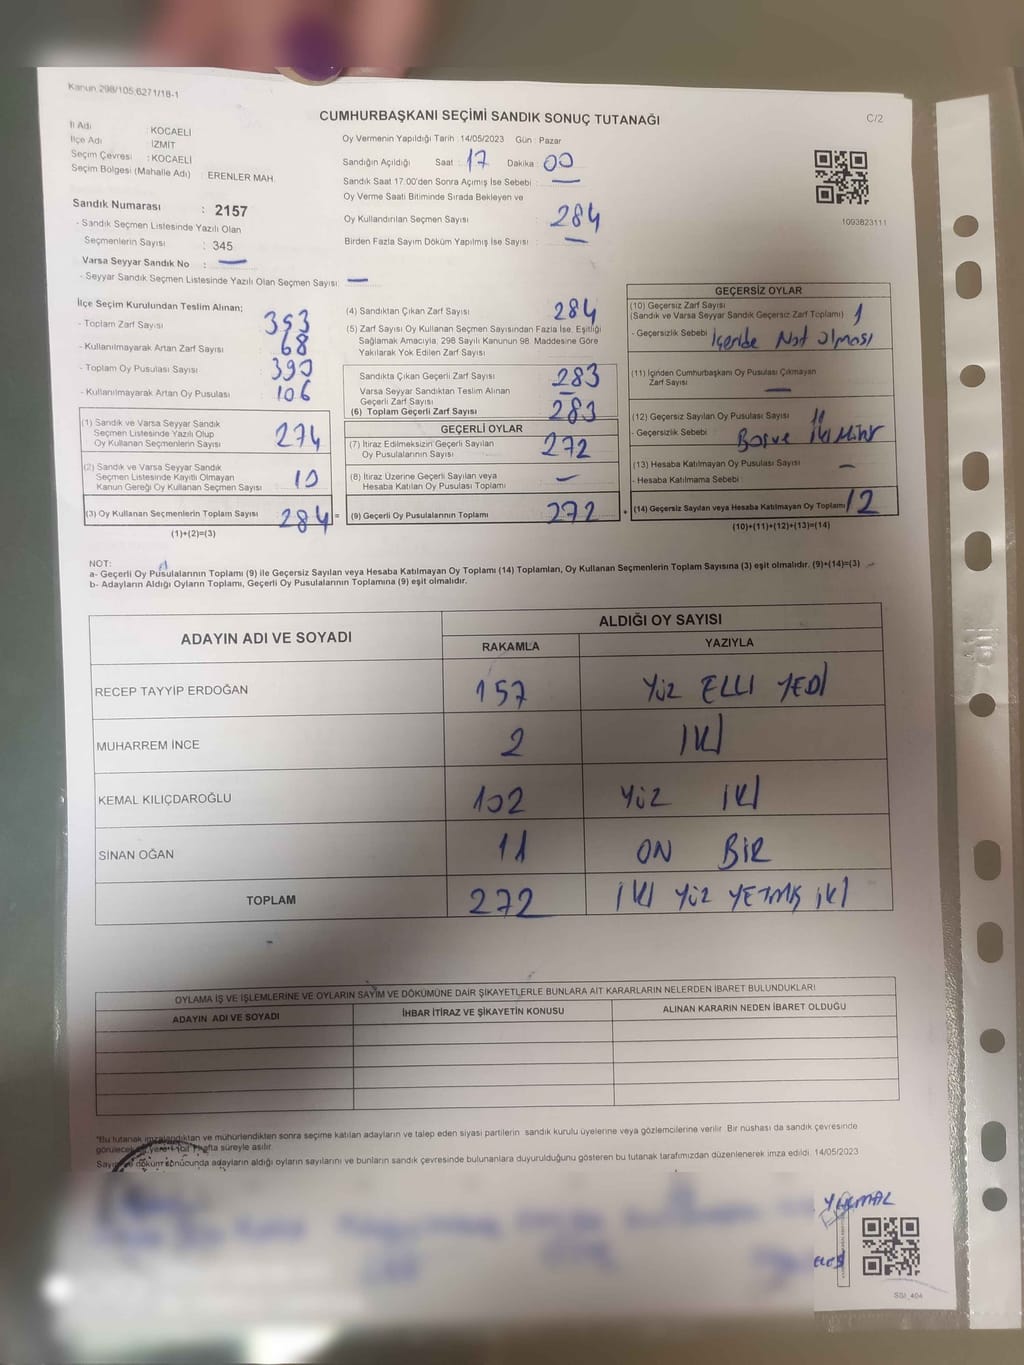 Kanun 298/105,6271/18-1
CUMHURBAŞKANI SEÇİMİ SANDIK SONUÇ TUTANAĞI
C/2
İl Adı : KOCAELİ
İlçe Adı : İZMİT
Seçim Çevresi : KOCAELİ
Seçim Bölgesi (Mahalle Adı) : ERENLER MAH.
Sandık Numarası : 2157
- Sandık Seçmen Listesinde Yazılı Olan
Seçmenlerin Sayısı : 345
Varsa Seyyar Sandık No : —
- Seyyar Sandık Seçmen Listesinde Yazılı Olan Seçmen Sayısı: —
Oy Vermenin Yapıldığı Tarih : 14/05/2023 Gün : Pazar
Sandığın Açıldığı Saat : 17 Dakika : 00
Sandık Saat 17.00'den Sonra Açımış İse Sebebi : —
Oy Verme Saati Bitiminde Sırada Bekleyen ve
Oy Kullandırılan Seçmen Sayısı : 284
Birden Fazla Sayım Döküm Yapılmış İse Sayısı : —
1093823111
İlçe Seçim Kurulundan Teslim Alınan;
- Toplam Zarf Sayısı 353
- Kullanılmayarak Artan Zarf Sayısı : 68
- Toplam Oy Pusulası Sayısı : 390
- Kullanılmayarak Artan Oy Pusulası : 106
(1) Sandık ve Varsa Seyyar Sandık
Seçmen Listesinde Yazılı Olup
Oy Kullanan Seçmenlerin Sayısı 274
(2) Sandık ve Varsa Seyyar Sandık
Seçmen Listesinde Kayıtlı Olmayan
Kanun Gereği Oy Kullanan Seçmen Sayısı 10
(3) Oy Kullanan Seçmenlerin Toplam Sayısı 284 =
(1)+(2)=(3)
(4) Sandıktan Çıkan Zarf Sayısı 284
(5) Zarf Sayısı Oy Kullanan Seçmen Sayısından Fazla İse, Eşitliği
Sağlamak Amacıyla, 298 Sayılı Kanunun 98. Maddesine Göre
Yakılarak Yok Edilen Zarf Sayısı
Sandıkta Çıkan Geçerli Zarf Sayısı 283
Varsa Seyyar Sandıktan Teslim Alınan
Geçerli Zarf Sayısı —
(6) Toplam Geçerli Zarf Sayısı 283
GEÇERLİ OYLAR
(7) İtiraz Edilmeksizin Geçerli Sayılan
Oy Pusulalarının Sayısı 272
(8) İtiraz Üzerine Geçerli Sayılan veya
Hesaba Katılan Oy Pusulası Toplamı —
(9) Geçerli Oy Pusulalarının Toplamı 272 +
GEÇERSİZ OYLAR
(10) Geçersiz Zarf Sayısı
(Sandık ve Varsa Seyyar Sandık Geçersiz Zarf Toplamı) 1
- Geçersizlik Sebebi İçeride Not Olması
(11) İçinden Cumhurbaşkanı Oy Pusulası Çıkmayan
Zarf Sayısı —
(12) Geçersiz Sayılan Oy Pusulası Sayısı 11
- Geçersizlik Sebebi Boş ve İki Mühür
(13) Hesaba Katılmayan Oy Pusulası Sayısı —
- Hesaba Katılmama Sebebi
(14) Geçersiz Sayılan veya Hesaba Katılmayan Oy Toplamı 12
(10)+(11)+(12)+(13)=(14)
NOT:
a- Geçerli Oy Pusulalarının Toplamı (9) ile Geçersiz Sayılan veya Hesaba Katılmayan Oy Toplamı (14) Toplamları, Oy Kullanan Seçmenlerin Toplam Sayısına (3) eşit olmalıdır. (9)+(14)=(3)
b- Adayların Aldığı Oyların Toplamı, Geçerli Oy Pusulalarının Toplamına (9) eşit olmalıdır.
ADAYIN ADI VE SOYADI ALDIĞI OY SAYISI
RAKAMLA YAZIYLA
RECEP TAYYİP ERDOĞAN 157 YÜZ ELLİ YEDİ
MUHARREM İNCE 2 İKİ
KEMAL KILIÇDAROĞLU 102 YÜZ İKİ
SİNAN OĞAN 11 ON BİR
TOPLAM 272 İKİ YÜZ YETMİŞ İKİ
OYLAMA İŞ VE İŞLEMLERİNE VE OYLARIN SAYIM VE DÖKÜMÜNE DAİR ŞİKAYETLERLE BUNLARA AİT KARARLARIN NELERDEN İBARET BULUNDUKLARI
ADAYIN ADI VE SOYADI İHBAR İTİRAZ VE ŞİKAYETİN KONUSU ALINAN KARARIN NEDEN İBARET OLDUĞU
*Bu tutanak imzalandıktan ve mühürlendikten sonra seçime katılan adayların ve talep eden siyasi partilerin sandık kurulu üyelerine veya gözlemcilerine verilir. Bir nüshası da sandık çevresinde
görülecek bir yere 1 (bir) hafta süreyle asılır.
Sayım ve döküm sonucunda adayların aldığı oyların sayılarını ve bunların sandık çevresinde bulunanlara duyurulduğunu gösteren bu tutanak tarafımızdan düzenlenerek imza edildi. 14/05/2023
SSI_404